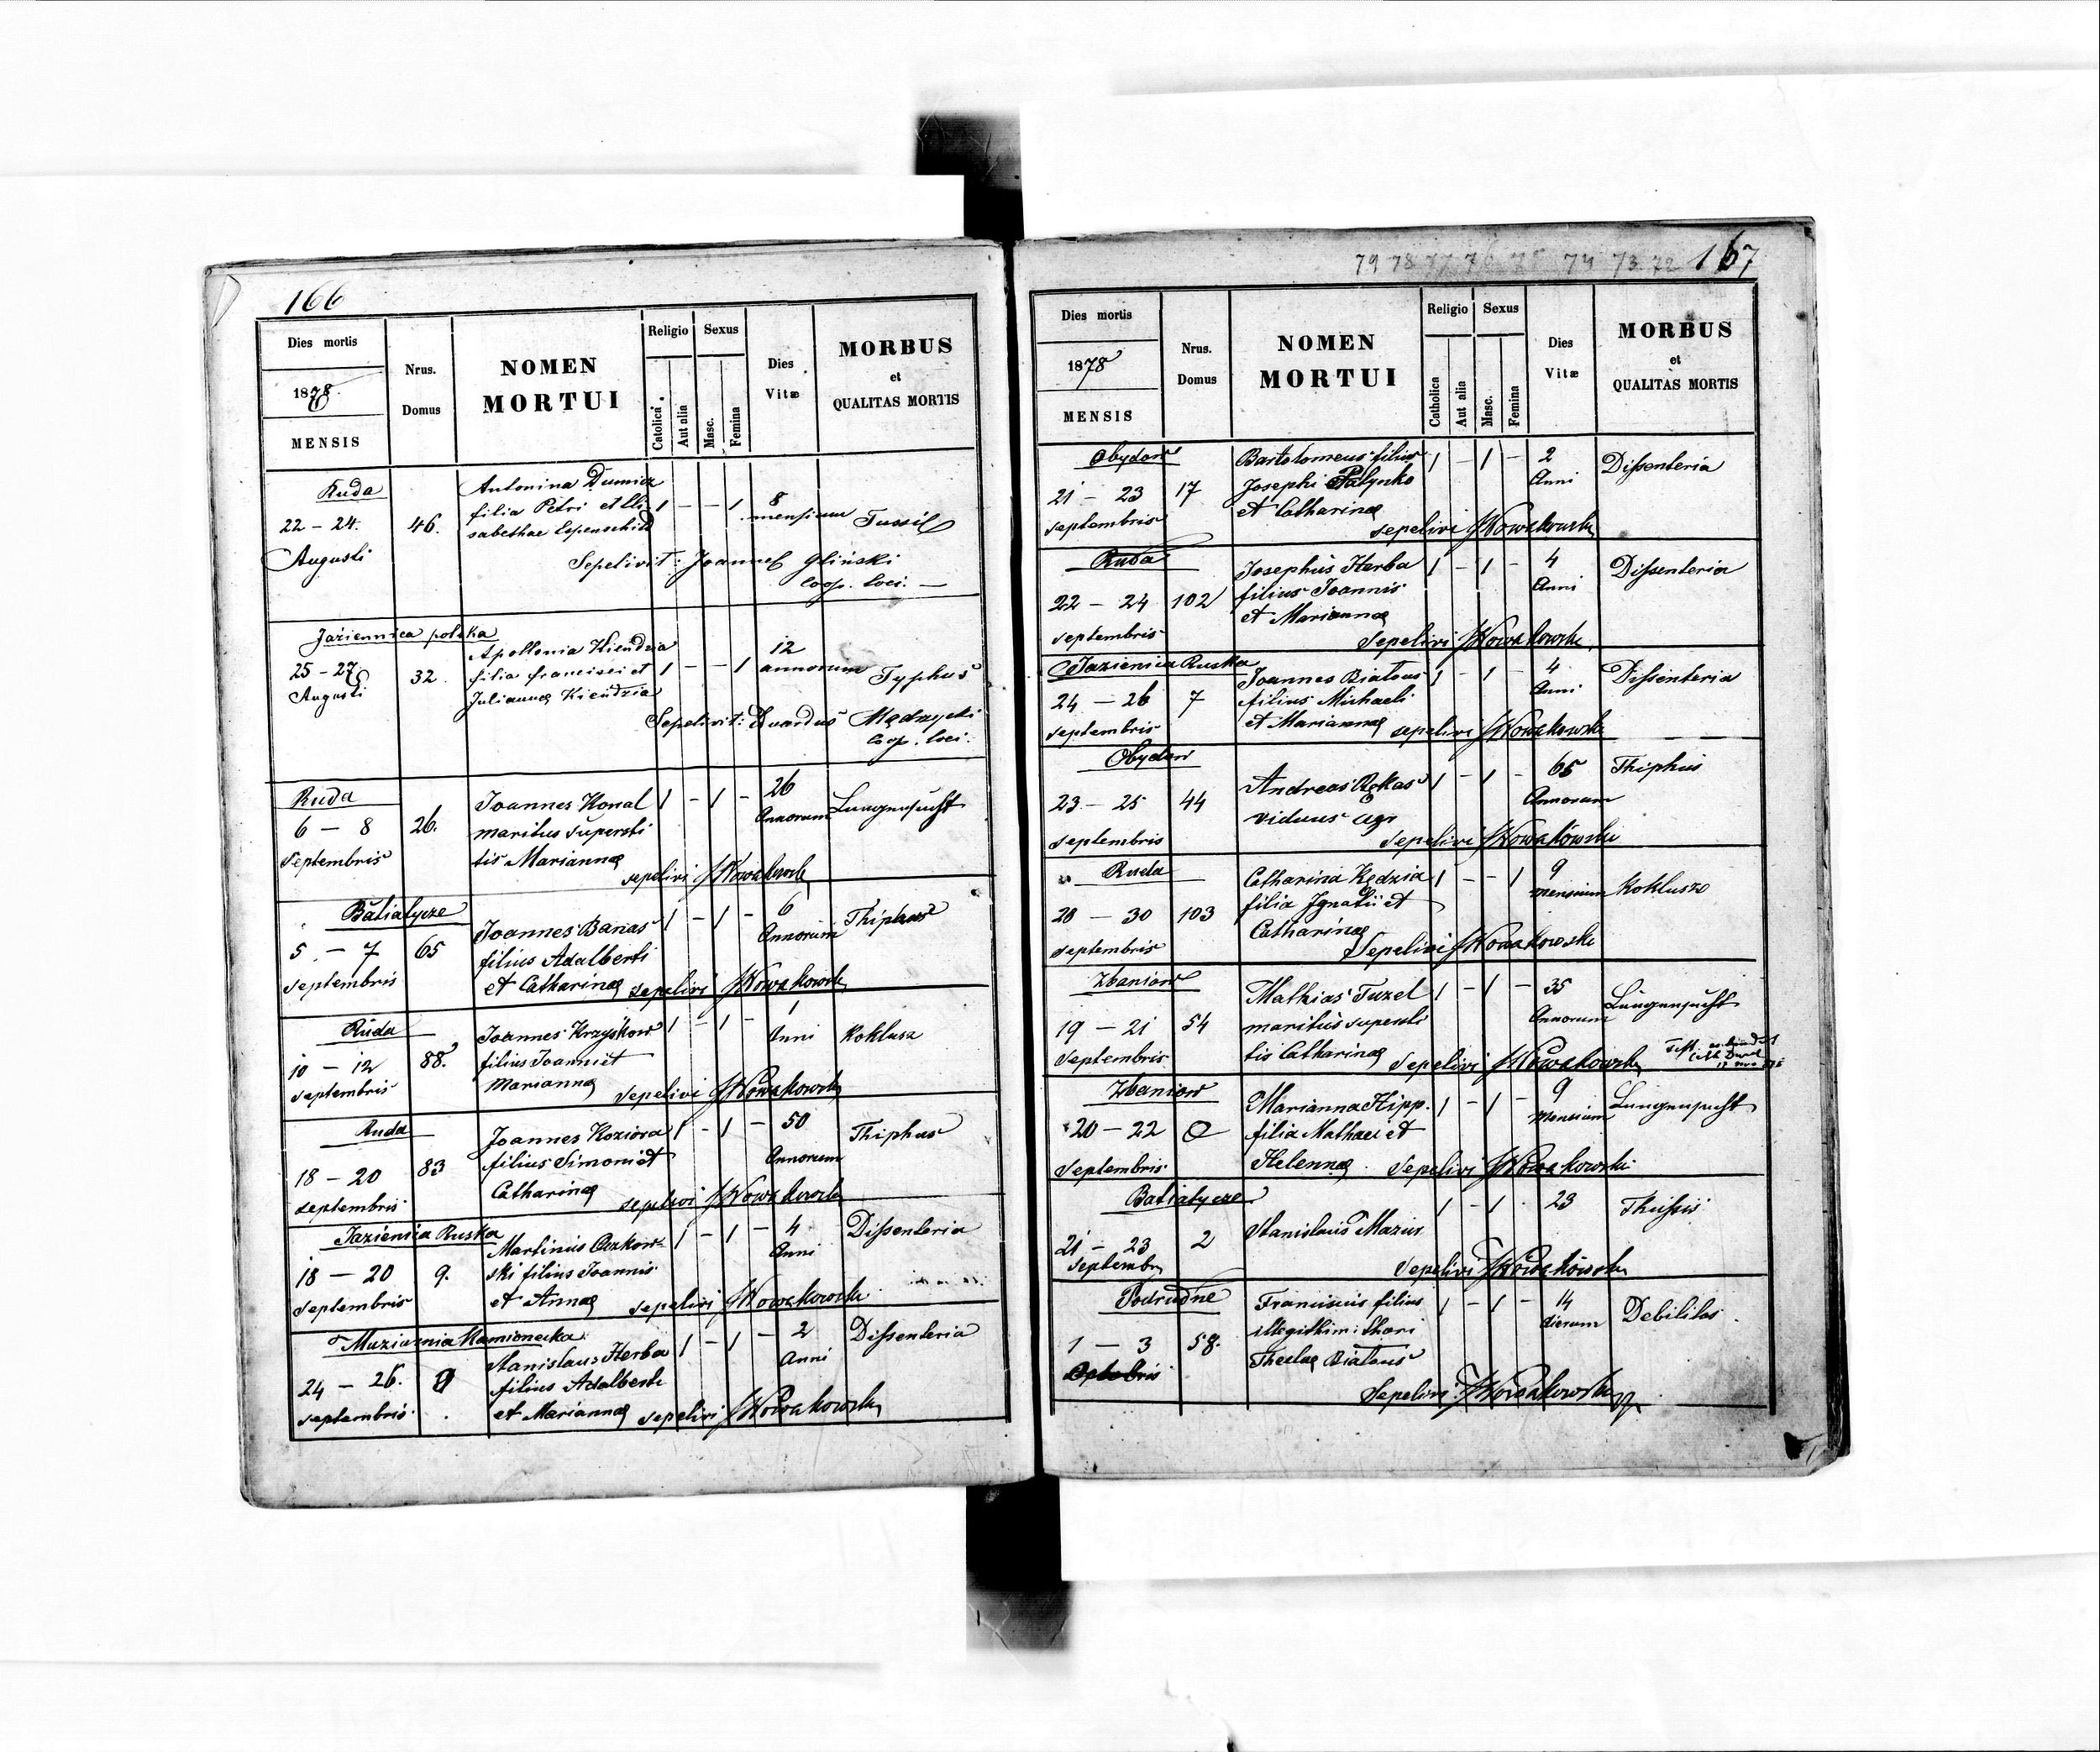 166
Dies mortis
1878.
MENSIS
Nrus.
Domus
NOMEN
MORTUI
Religio
Catolica
Aut alia
Sexus
Masc.
Femina
Dies
Vitæ
MORBUS
et
QUALITAS MORTIS
Ruda
22 – 24.
Augusti
46.
Antonina Dumicz
filia Petri et Eli
sabethae Espenschild
1 – – 1
8
mensium
Tussis
Sepelivit: Joannes Gliński
Coop. loci. –
Jaziennica polska
25 – 27
Augusti
32.
Apollonia Kiendzia
filia Francisci et
Juliannæ Kiendzia
1 – – 1
12
annorum
Typhus
Sepelivit: Eduardus Mędrzycki
Coop. loci.
Ruda
6 – 8
Septembris
26.
Joannes Konal
maritus supersti
tis Mariannæ
1 – 1 –
26
Annorum
Lungensucht
sepelivi JNowakowski
Batiatycze
5 – 7
septembris
65
Joannes Banas
filius Adalberti
et Catharinæ
1 – 1 –
6
Annorum
Thiphus
sepelivi JNowakowski
Ruda
10 – 12
septembris
88.
Joannes Krzyśkow
filius Joanni et
Mariannæ
1 – 1 –
1
Anni
Koklusz
sepelivi JNowakowski
Ruda
18 – 20
septembris
83
Joannes Koziora
filius Simoni et
Catharinæ
1 – 1 –
50
Annorum
Thiphus
sepelivi JNowakowski
Jazienica Ruska
18 – 20
septembris
9.
ski filius Joannis
et Annæ
1 – 1 –
4
Anni
Dissenteria
sepelivi JNowakowski
24 – 26.
septembris
Stanislaus Herba
filius Adalberti
et Mariannæ
1 – 1 –
2
Anni
Dissenteria
sepelivi JNowakowski
79 78 77 76 75 74 73 72
167
Dies mortis
1878
MENSIS
Nrus.
Domus
NOMEN
MORTUI
Religio
Catholica
Aut alia
Sexus
Masc.
Femina
Dies
Vitæ
MORBUS
et
QUALITAS MORTIS
Obydow
21 – 23
septembris
17
Bartolomeus filius
Josephi Palynko
et Catharinæ
1 – 1 –
2
Anni
Dissenteria
sepelivi JNowakowski
Ruda
22 – 24
septembris
102
Josephus Herba
filius Joannis
et Mariannæ
1 – 1 –
4
Anni
Dissenteria
Sepelivi JNowakowski
Jazienica Ruska
24 – 26
septembris
7
Joannes Białous
filius Michaeli
et Mariannæ
1 – 1 –
4
Anni
Dissenteria
sepelivi JNowakowski
Obydow
23 – 25
septembris
44
Andreas Rękas
viduus agr
1 – 1 –
65
Annorum
Thiphus
sepelivi JNowakowski
Ruda
28 – 30
septembris
103
Catharina Kędzia
filia Ignatii et
Catharinæ
1 – – 1
9
mensium
Koklusz
Sepelivi JNowakowski
Zbaniow
19 – 21
Septembris
54
Mathias Tuzel
maritus supersti
tis Catharinæ
1 – 1 –
35
Annorum
Lungensucht
Sepelivi JNowakowski
Zbaniow
20 – 22
Septembris
Marianna Hipp
filia Mathaei et
Helennæ
1 – 1 –
9
Mensium
Lungensucht
Sepelivi JNowakowski
Batiatycze
21 – 23
Septembr
2
Stanislaus Mazur
1 – 1
23
Thussis
Sepelivi JNowakowski
Podrudne
1 – 3
58.
Franciscus filius
illegithimi thori
Theclæ Białous
1 – 1 –
14
dierum
Debilitas
Sepelivi JNowakowski